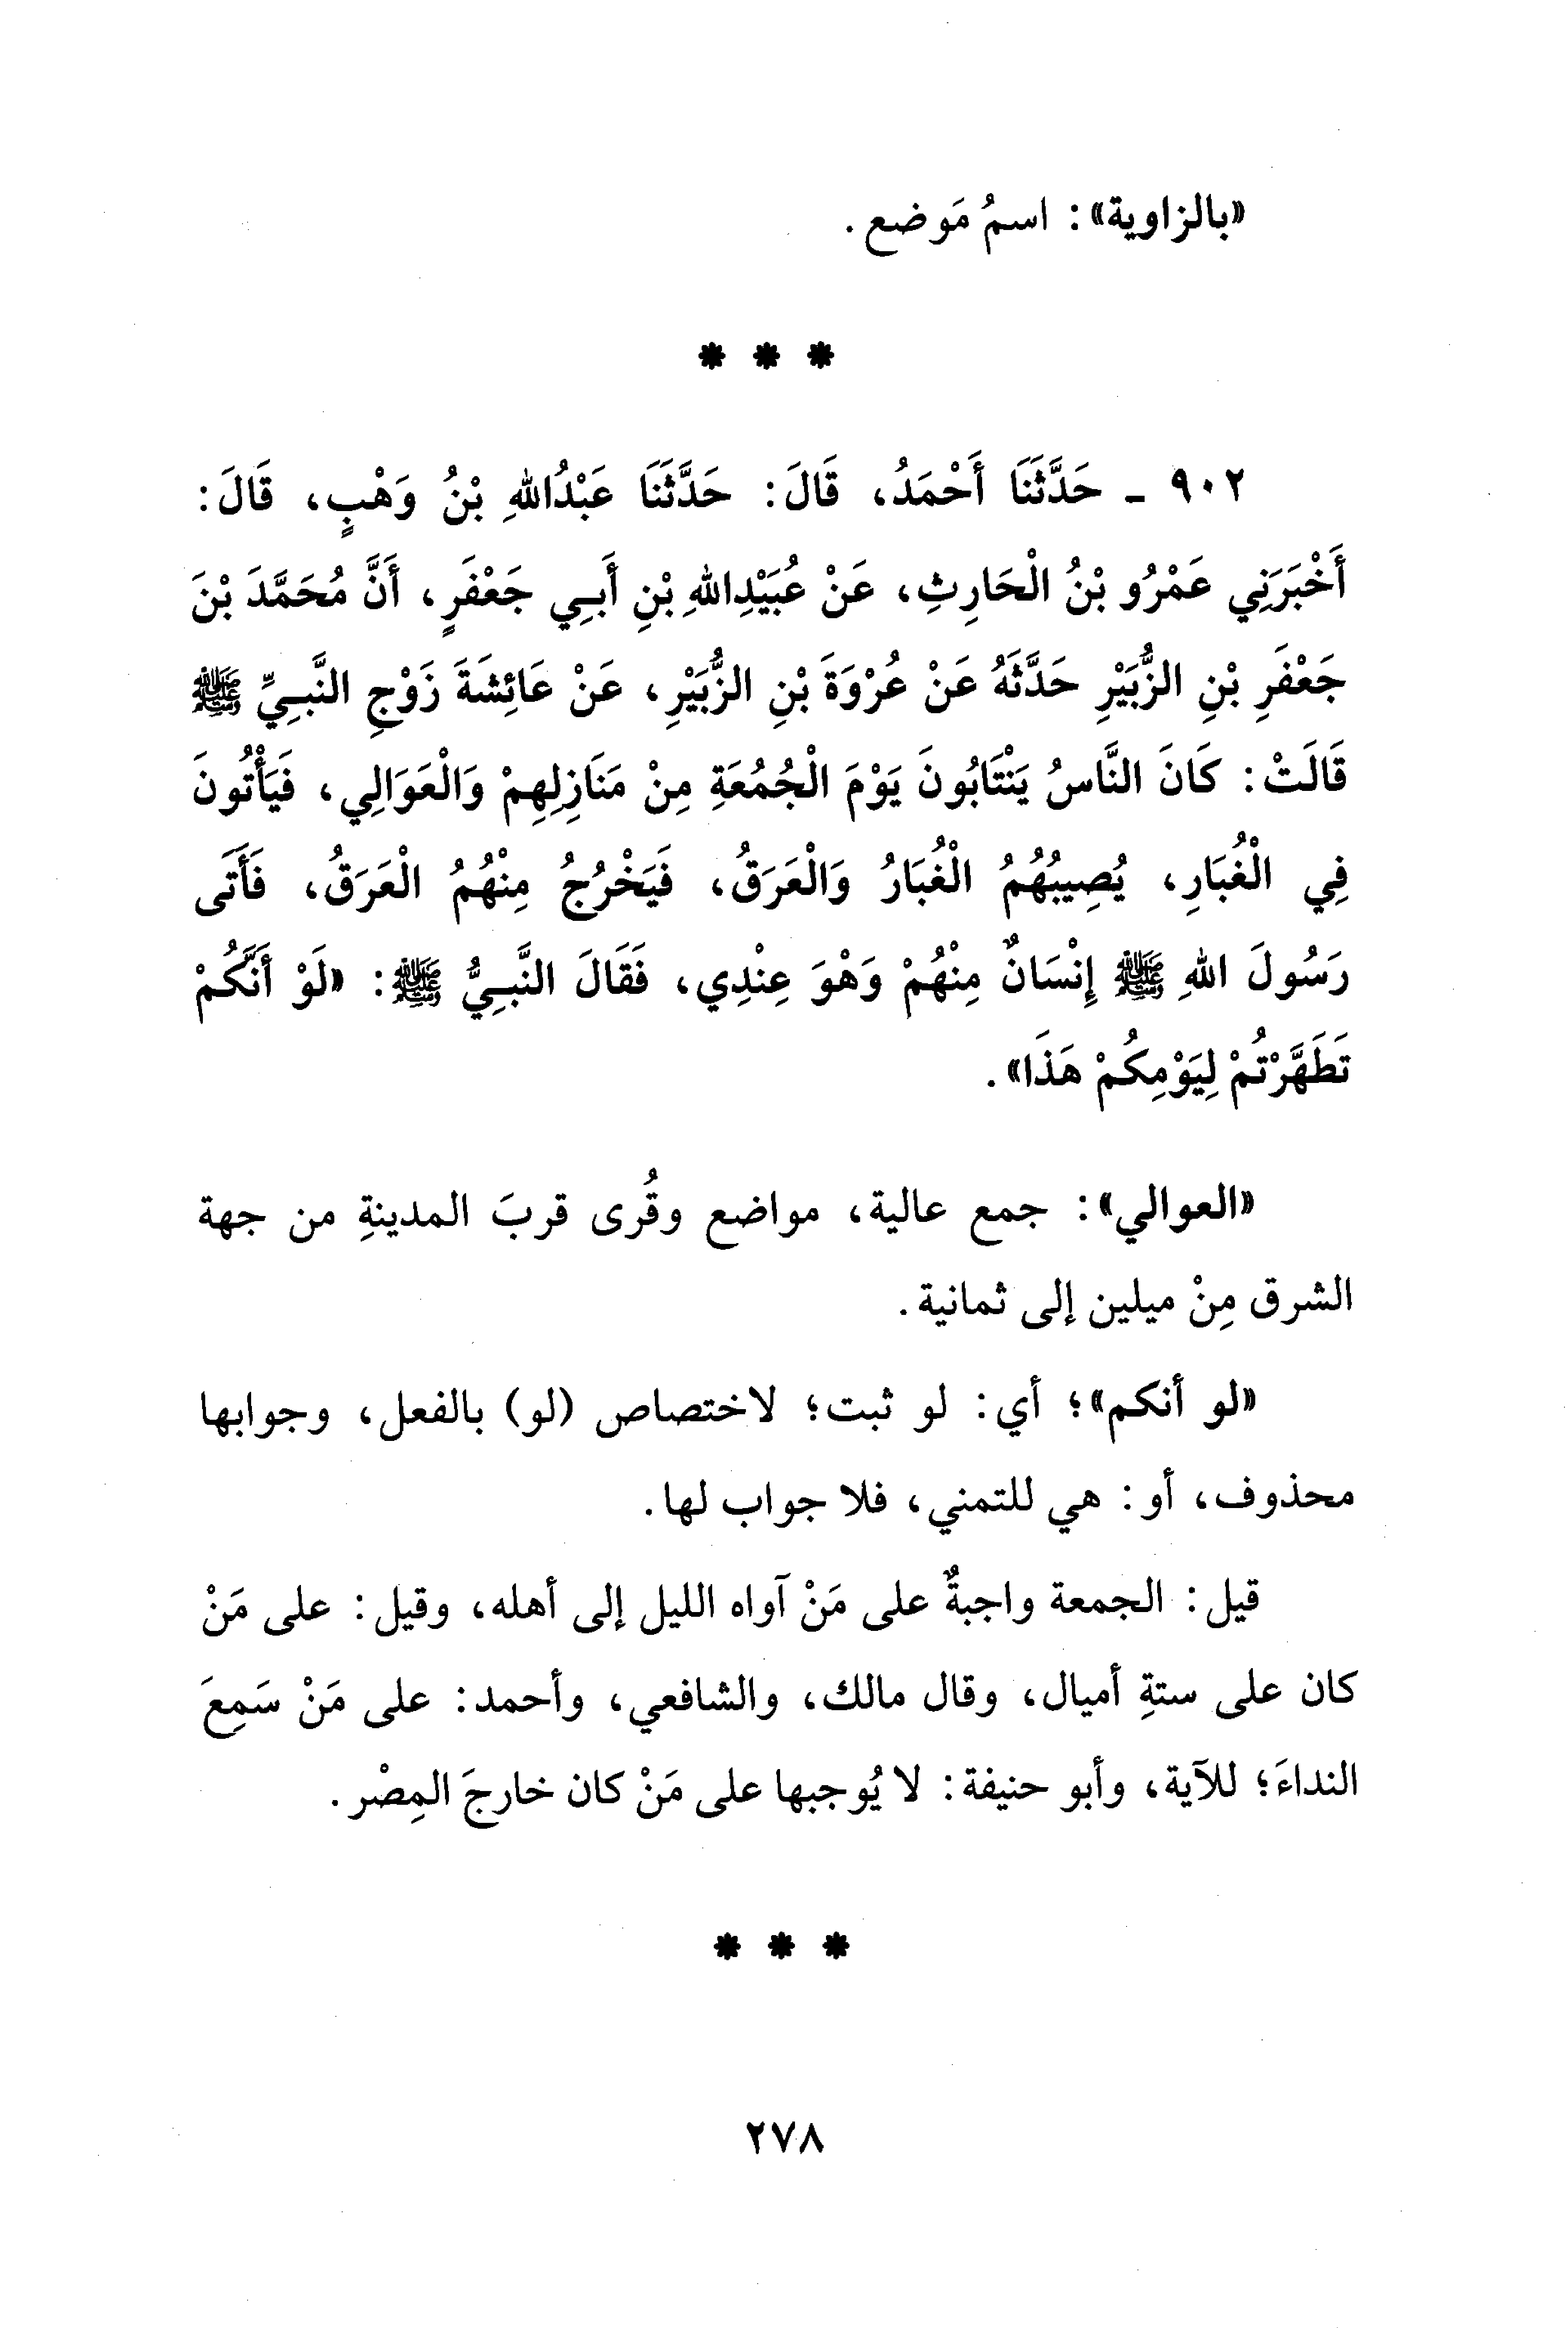 «بالزاوية»: اسمُ مَوضع.
* * *
٩٠٢ ـ حَدَّثَنَا أَحْمَدُ، قَالَ: حَدَّثَنَا عَبْدُاللهِ بْنُ وَهْبٍ، قَالَ:
أَخْبَرَنِي عَمْرُو بْنُ الْحَارِثِ، عَنْ عُبَيْدِاللهِ بْنِ أَبِي جَعْفَرٍ، أَنَّ مُحَمَّدَ بْنَ
جَعْفَرِ بْنِ الزُّبَيْرِ حَدَّثَهُ عَنْ عُرْوَةَ بْنِ الزُّبَيْرِ، عَنْ عَائِشَةَ زَوْجِ النَّبِيِّ ﷺ
قَالَتْ: كَانَ النَّاسُ يَنْتَابُونَ يَوْمَ الْجُمُعَةِ مِنْ مَنَازِلِهِمْ وَالْعَوَالِي، فَيَأْتُونَ
فِي الْغُبَارِ، يُصِيبُهُمُ الْغُبَارُ وَالْعَرَقُ، فَيَخْرُجُ مِنْهُمُ الْعَرَقُ، فَأَتَى
رَسُولَ اللهِ ﷺ إِنْسَانٌ مِنْهُمْ وَهْوَ عِنْدِي، فَقَالَ النَّبِيُّ ﷺ: «لَوْ أَنَّكُمْ
تَطَهَّرْتُمْ لِيَوْمِكُمْ هَذَا».
«العوالي»: جمع عالية، مواضع وقُرى قربَ المدينةِ من جهة
الشرق مِنْ ميلين إلى ثمانية.
«لو أنكم»؛ أي: لو ثبت؛ لاختصاص (لو) بالفعل، وجوابها
محذوف، أو: هي للتمني، فلا جواب لها.
قيل: الجمعة واجبةٌ على مَنْ آواه الليل إلى أهله، وقيل: على مَنْ
كان على ستةِ أميال، وقال مالك، والشافعي، وأحمد: على مَنْ سَمِعَ
النداءَ؛ للآية، وأبو حنيفة: لا يُوجبها على مَنْ كان خارجَ المِصْر.
* * *
٢٧٨